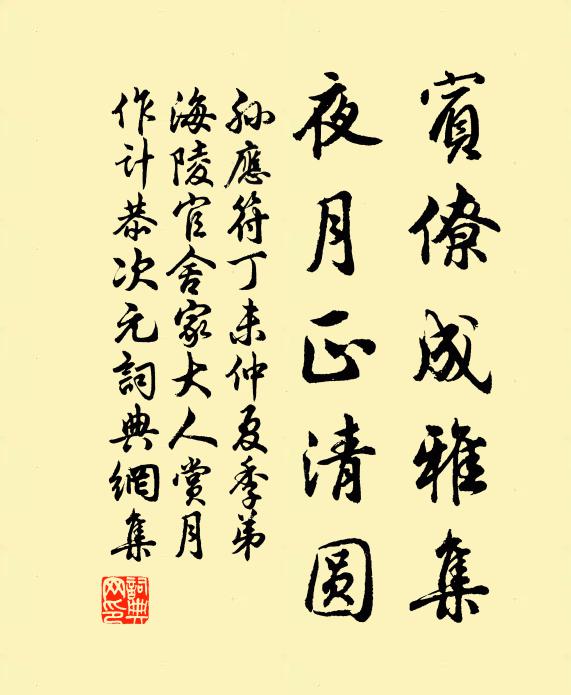 賓僚成雅集
夜月正清圆
孙應符丁未仲夏季弟
海陵官舍家大人賞月
作計恭次元詞典網集
詞典网印